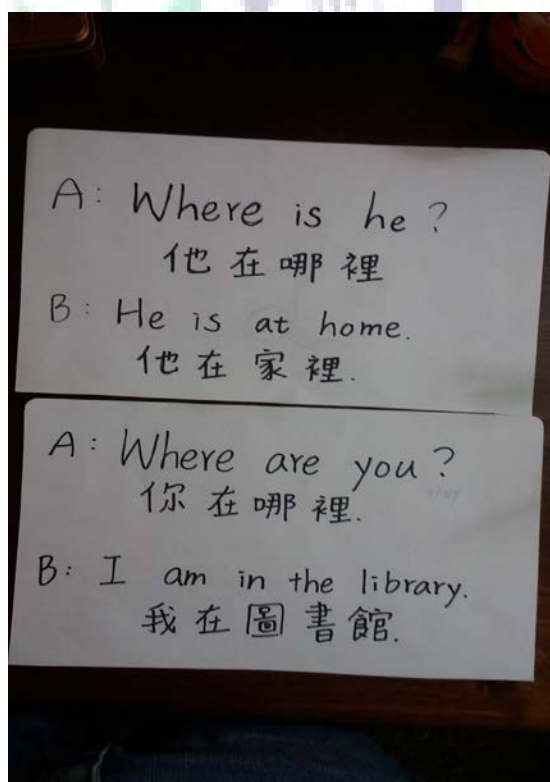 A: Where is he?
他在哪裡
B: He is at home.
他在家裡.
A: Where are you?
你在哪裡.
B: I am in the library.
我在圖書館.